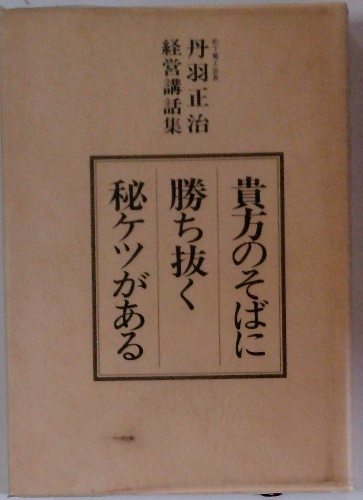 松下電工会長
丹羽正治
経営講話集
貴方のそばに
勝ち抜く
秘ケツがある